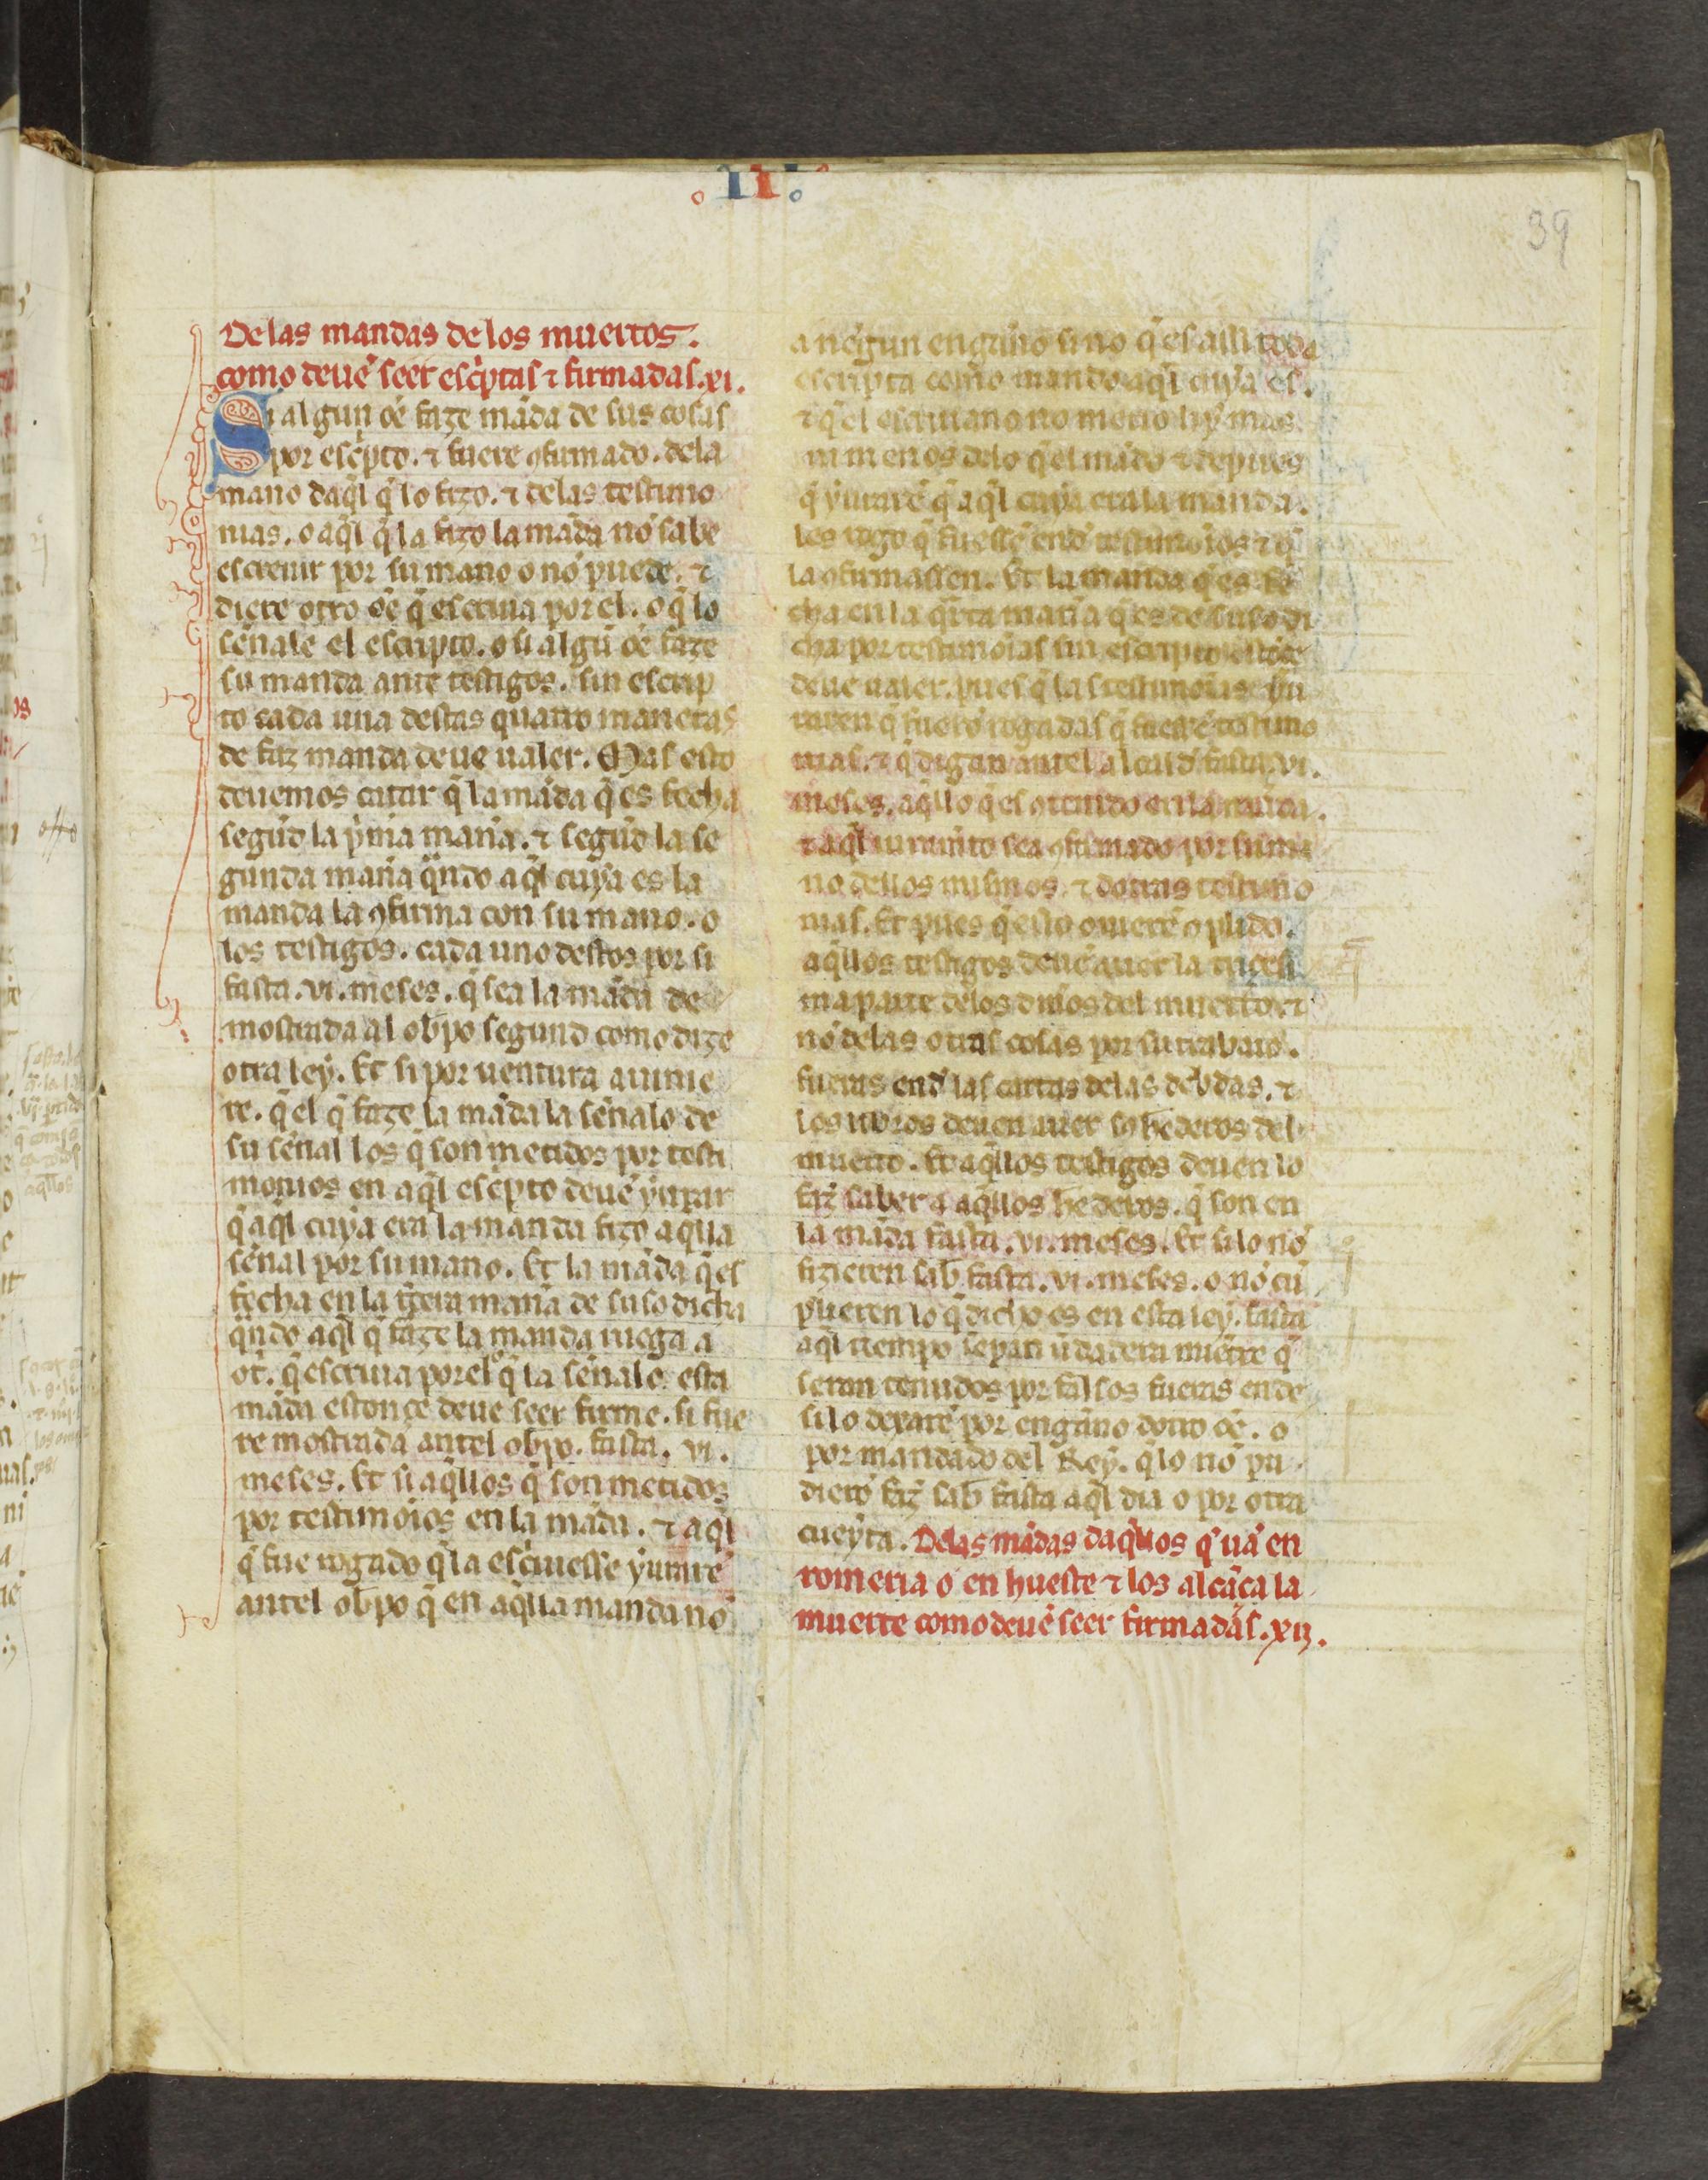 .II.
39
De las mandas de los muertos.
como deuẽ seer esc̃ptas ⁊ firmadas .xi.
Si algun oẽ faze mãda de sus cosas
por esc̃pto. ⁊ fuere ꝯfirmado. dela
mano daq̃l q̃ lo fizo. ⁊ delas testimo
nias. o aq̃l q̃ la fizo la mãda nõ sabe
escreuir por su mano o nõ puede. ⁊
diere otro oẽ q̃ escriua por el. o q̃ lo
señale el escripto. o si algũ oẽ faze
su manda ante testigos. sin escrip
to cada una destas quatro maneras
de faz̃ manda deue ualer. Mas esto
deuemos catar q̃ la mãda q̃ es fecha
segũd la p̃mia mañia. ⁊ segũd la se
gunda mañia q̃ndo aq̃l cuya es la
manda la ꝯfirma con su mano. o
los testigos. cada uno destos por si
fasta .vi. meses. q̃ sea la mãda de
mostrada al ob̃po segund como dize
otra ley. Et si por uentura auinie
re. q̃ el q̃ faze la mãda la señalo de
su señal los q̃ son metidos por testi
monios en aq̃l esc̃pto deuẽ yurar
q̃ aq̃l cuya era la manda fizo aq̃lla
señal por su mano. Et la mãda q̃ es
fecha en la t̃cera mañia de suso dicha
q̃ndo aq̃l q̃ faze la manda ruega a
ot̃. q̃ escriua por el o q̃ la señale. esta
mãda estonçe deue seer firme. si fue
re mostrada antel ob̃po. fasta. vi.
meses. Et si aq̃llos q̃ son metidos
por testimõios en la mãda. ⁊ aq̃l
q̃ fue rogado q̃ la esc̃uiesse yurarẽ
antel ob̃po q̃ en aq̃lla manda nõ
a negun engaño si no q̃ es alli toda
escripta como mando aq̃l cuya es.
⁊ q̃ el escriuano no metio hy mas
ni menos delo q̃ el mãdo ⁊ depues
q̃ yurarẽ q̃ aq̃l cuya era la manda.
les rogo q̃ fuessẽ end̃ testimõios ⁊ q̃
la ꝯfirmassen. Et la manda q̃ es fe
cha en la q̃rta mañia q̃ es de suso di
cha por testimõias sin escripto
deue ualer. pues q̃ las testimõias yu
raren q̃ fuerõ rogadas q̃ fuessẽ testimo
nias. ⁊ q̃ digan antel alcald̃ fasta .vi.
meses. aq̃llo q̃ es ꝯtenido en la mãda.
⁊ aq̃l iuramt̃o sea ꝯfirmado por su ma
no dellos mismos. ⁊ dotras testimo
nias. Et pues q̃ esto ouierẽ ꝯplido.
aq̃llos testigos deuẽ auer la trigesi
ma parte delos dñios del muerto. ⁊
nõ delas otras cosas por su trabaio.
fueras end̃ las cartas delas debdas. ⁊
los libros deuen auer los hederos del
muerto. Et aq̃llos testigos deuen lo
faz̃ saber a aq̃llos hederos. q̃ son en
la mãda fasta .vi. meses. Et si lo nõ
fizieren sab̃ fasta .vi. meses. o nõ cũ
plieren lo q̃ dicho es en esta ley. fasta
aq̃l tiempo sepan ũdadera miẽtre q̃
seran tenudos por falsos fueras ende
si lo dexarẽ por engãno dotro oẽ. o
por mandado del Rey. q̃ lo nõ pu
dierõ faz̃ sab̃ fasta aq̃l dia o por otra
cueyta. Delas mãdas daq̃llos q̃ uã en
romeria o en hueste ⁊ los alcãça la
muerte como deuẽ seer firmadas .xij.